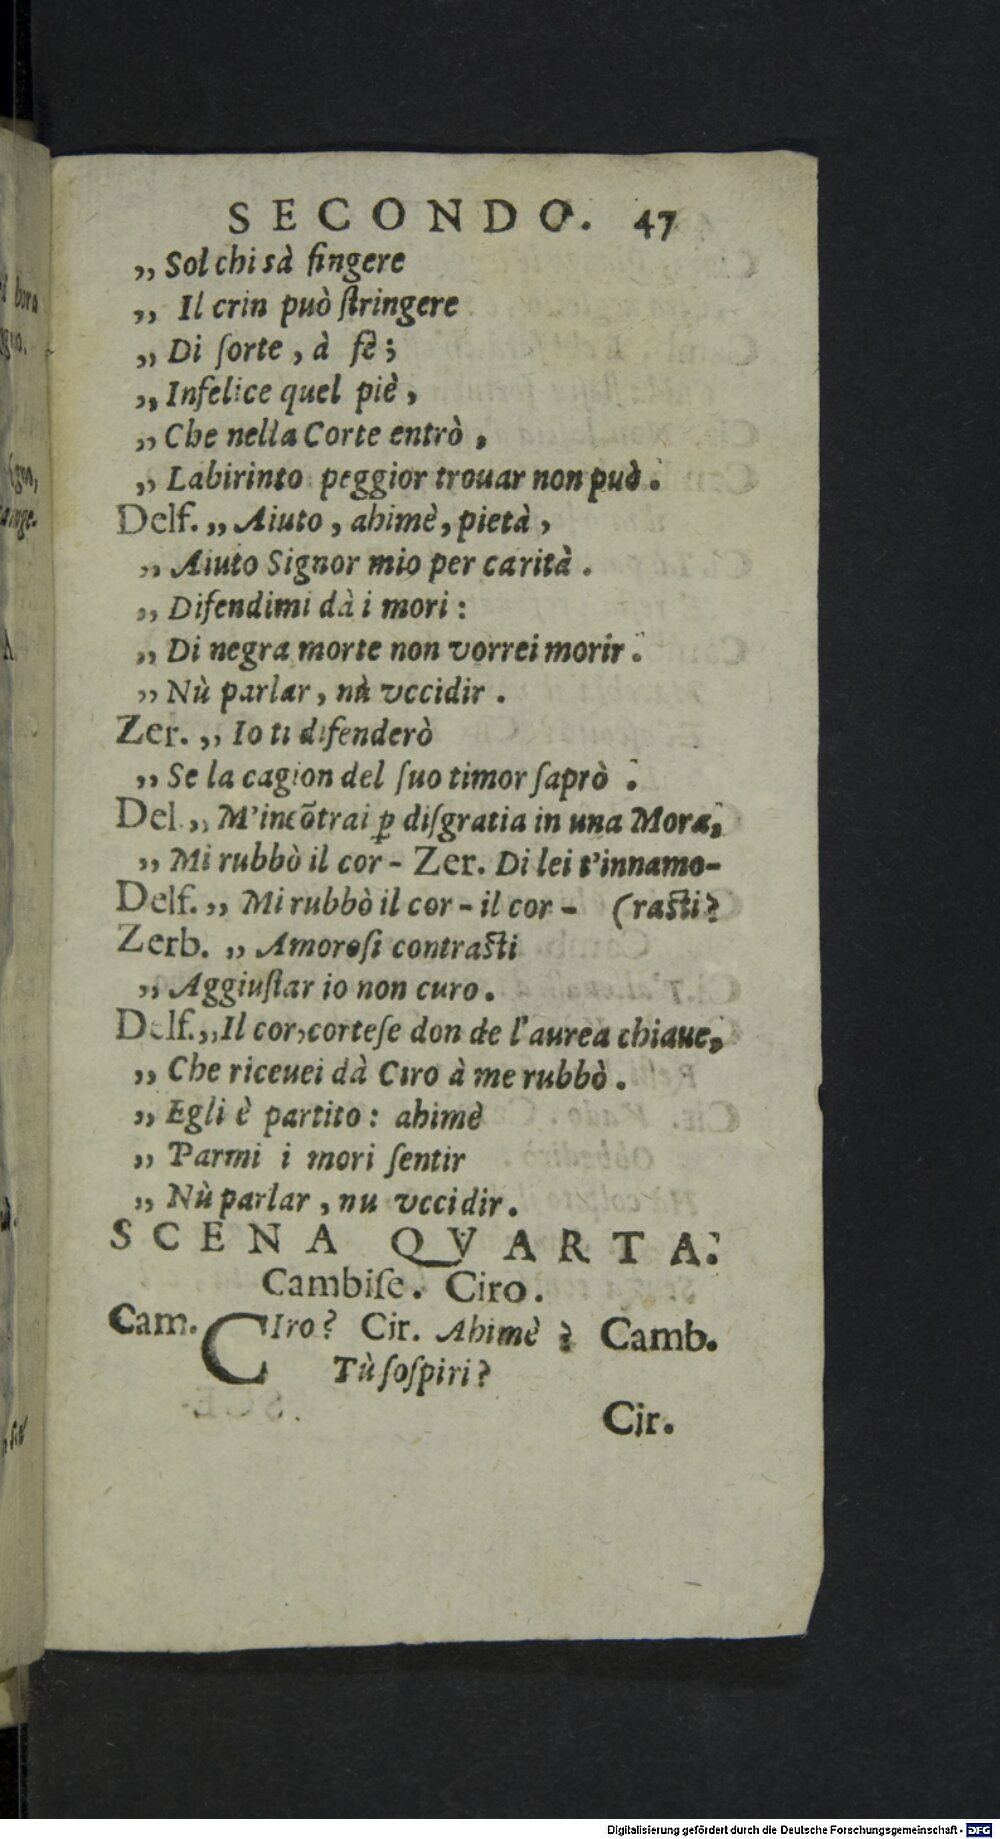 SECONDO. 47
„ Sol chi sà fingere
„ Il crin può ſtringere
„ Di ſorte, à fè;
„ Infelice quel piè,
„ Che nella Corte entrò,
„ Labirinto peggior trouar non può.
Delf. „ Aiuto, ahimè, pietà,
„ Aiuto Signor mio per carità.
„ Difendimi dà i mori:
„ Di negra morte non vorrei morir.
„ Nù parlar, nù vccidir.
Zer. „ Io ti difenderò
„ Se la cagion del ſuo timor ſaprò.
Del. „ M'incõtrai ꝑ diſgratia in una Mora,
„ Mi rubbò il cor - Zer. Di lei t'innamo-
Delf. „ Mi rubbò il cor - il cor - (raſti?
Zerb. „ Amoroſi contraſti
„ Aggiuſtar io non curo.
Delf. „ Il cor, corteſe don de l'aurea chiaue,
„ Che riceuei dà Ciro à me rubbò.
„ Egli è partito: ahimè
„ Parmi i mori ſentir
„ Nù parlar, nu vccidir.
SCENA QVARTA.
Cambiſe. Ciro.
Cam. CIro? Cir. Ahimè? Camb.
Tù ſoſpiri?
Cir.
Digitalisierung gefördert durch die Deutsche Forschungsgemeinschaft - DFG